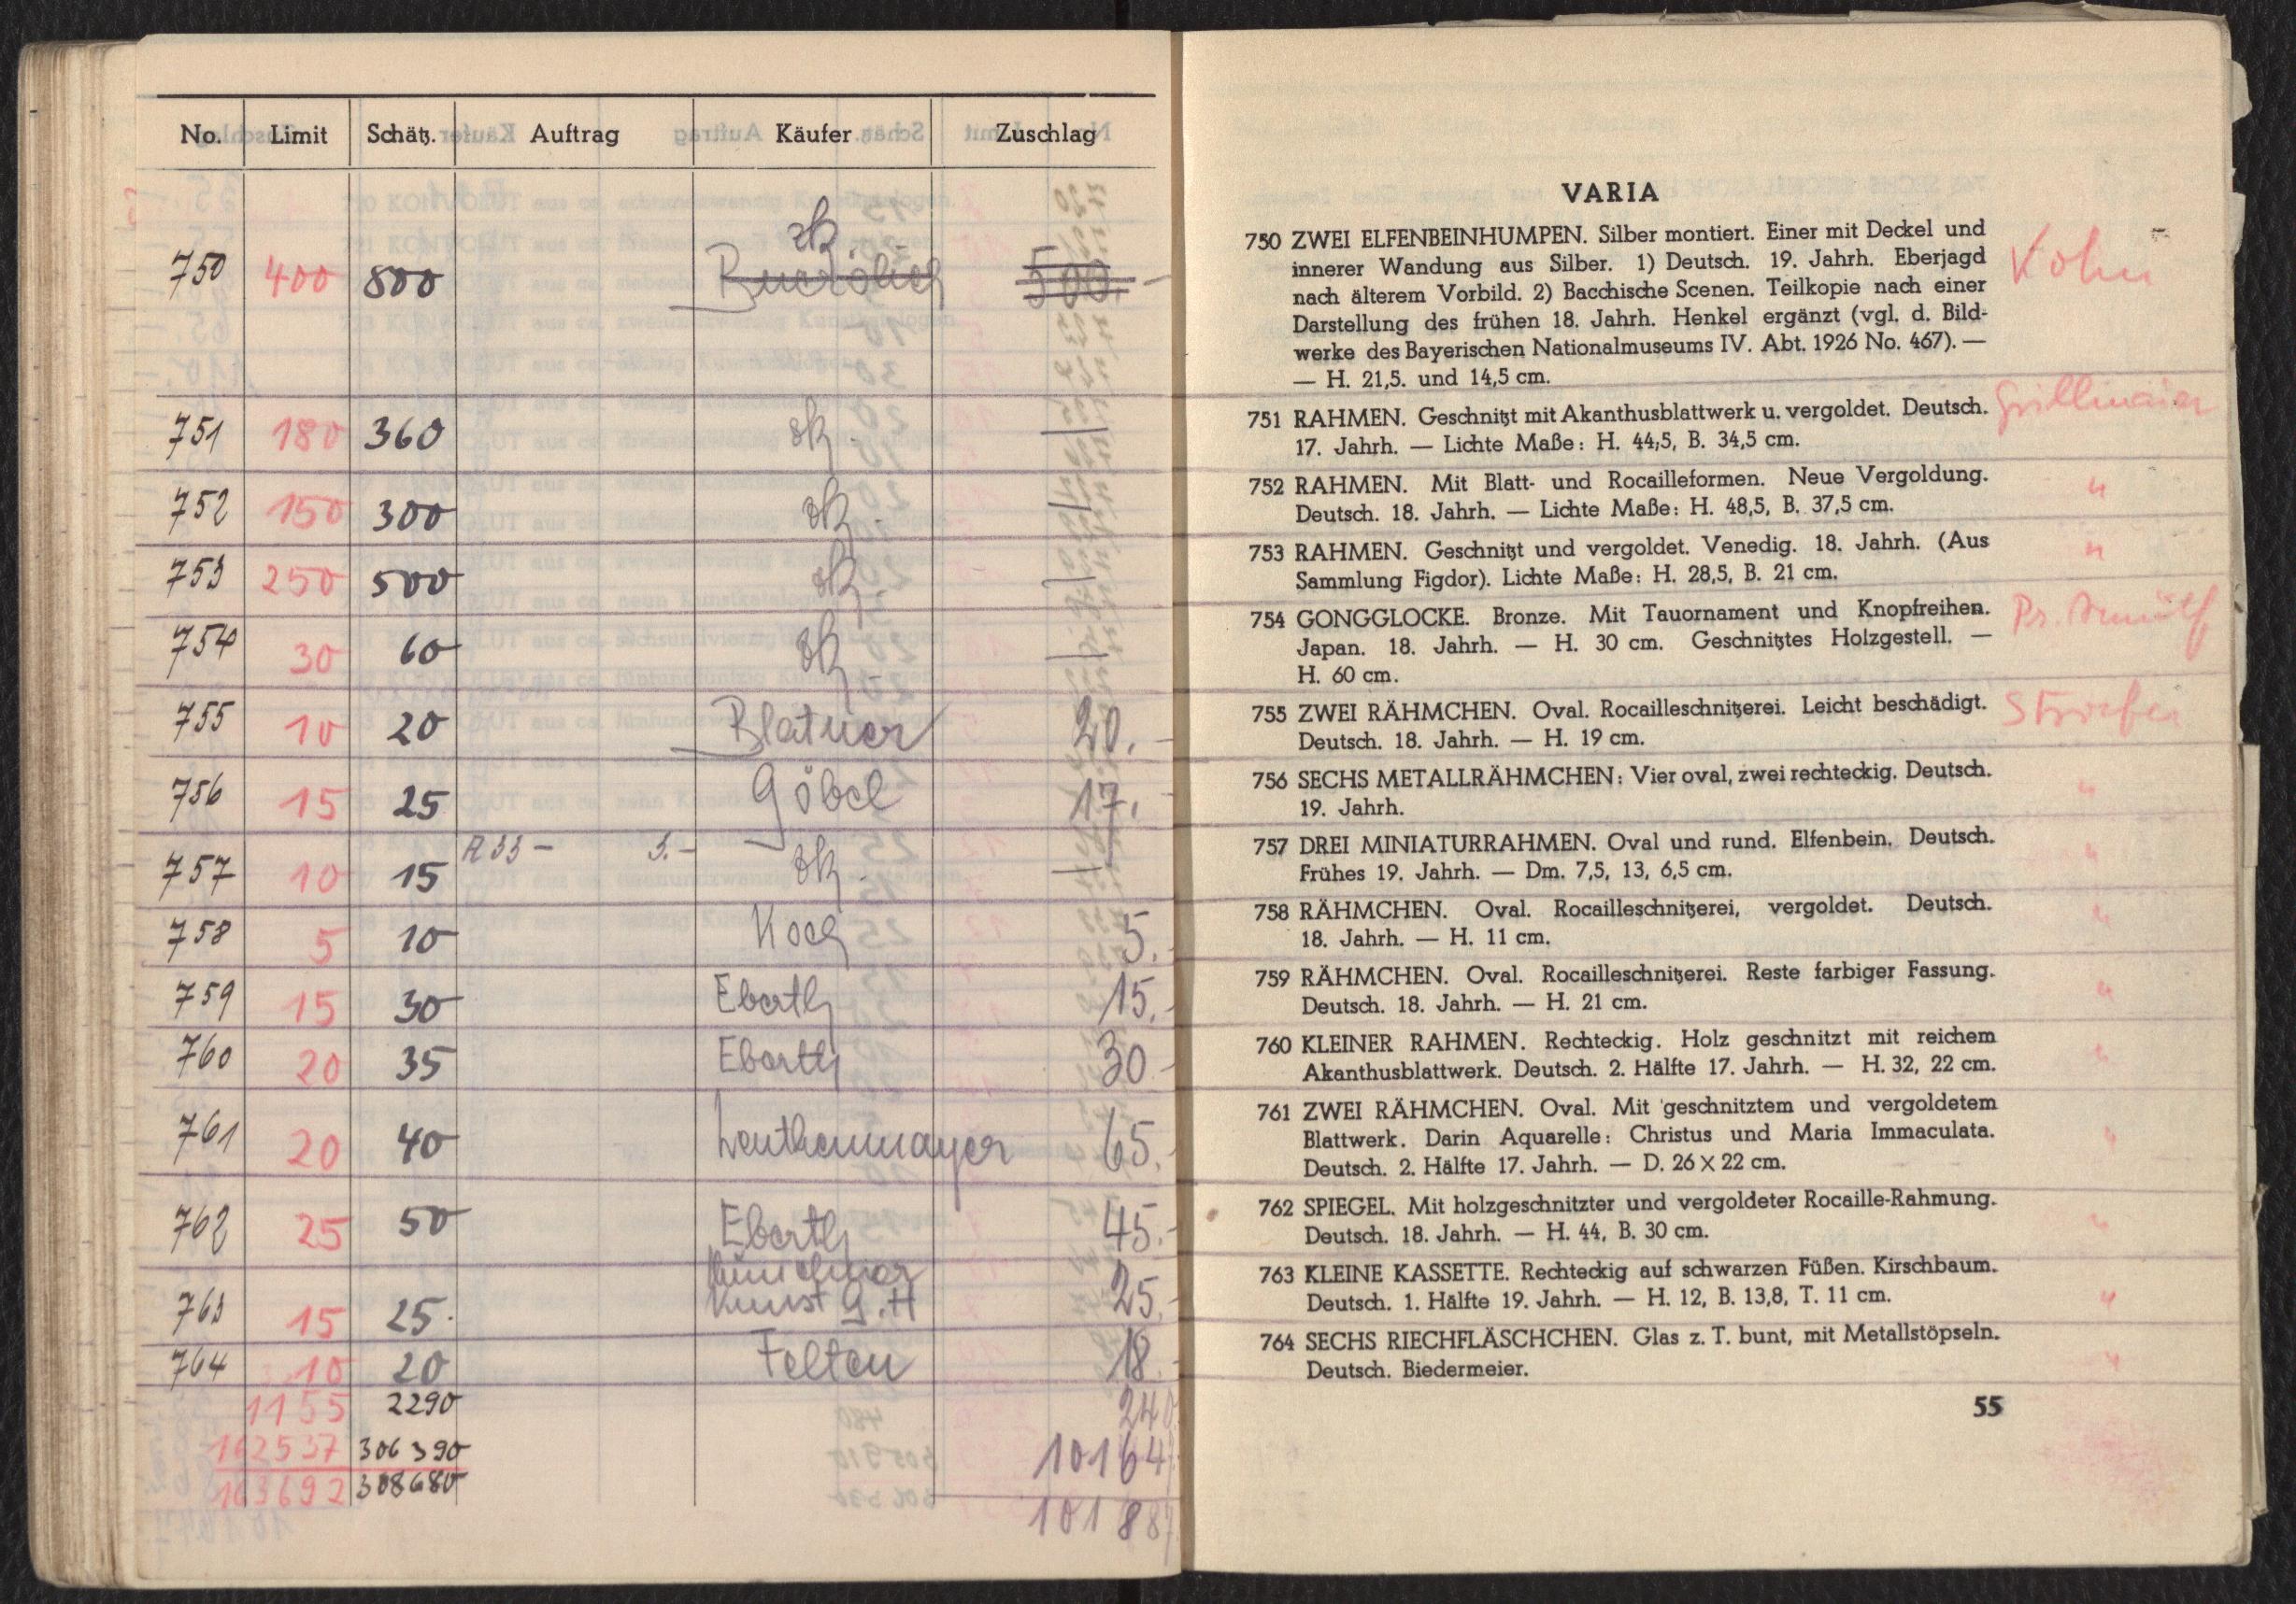 No. Limit Schätz. Auftrag Käufer Zuschlag
zk.
750 400 800 500.-
751 180 360 zk. —
752 150 300 zk. —
753 250 500 zk. —
754 30 60 zk. —
755 10 20 Blatner 20.-
756 15 25 Göbel 17.-
757 10 15 zk. —
758 5 10 Koch 5.-
759 15 30 Eberth 15.-
760 20 35 Eberth 30.-
761 20 40 65.-
762 25 50 Eberth 45.-
Münchner
763 15 25. Kunst 25.-
764 10 20 Felten 18.-
1155 2290 240
162537 306390
163692 308680
VARIA
750 ZWEI ELFENBEINHUMPEN. Silber montiert. Einer mit Deckel und Kohn
innerer Wandung aus Silber. 1) Deutsch. 19. Jahrh. Eberjagd
nach älterem Vorbild. 2) Bacchische Scenen. Teilkopie nach einer
Darstellung des frühen 18. Jahrh. Henkel ergänzt (vgl. d. Bild-
werke des Bayerischen Nationalmuseums IV. Abt. 1926 No. 467). —
— H. 21,5. und 14,5 cm.
751 RAHMEN. Geschnitzt mit Akanthusblattwerk u. vergoldet. Deutsch. Grillmaier
17. Jahrh. — Lichte Maße: H. 44,5, B. 34,5 cm.
752 RAHMEN. Mit Blatt- und Rocailleformen. Neue Vergoldung. "
Deutsch. 18. Jahrh. — Lichte Maße: H. 48,5, B. 37,5 cm.
753 RAHMEN. Geschnitzt und vergoldet. Venedig. 18. Jahrh. (Aus "
Sammlung Figdor). Lichte Maße: H. 28,5, B. 21 cm.
754 GONGGLOCKE. Bronze. Mit Tauornament und Knopfreihen. Pr. Arnulf
Japan. 18. Jahrh. — H. 30 cm. Geschnitztes Holzgestell. —
H. 60 cm.
755 ZWEI RÄHMCHEN. Oval. Rocailleschnitzerei. Leicht beschädigt.
Deutsch. 18. Jahrh. — H. 19 cm.
756 SECHS METALLRÄHMCHEN: Vier oval, zwei rechteckig. Deutsch. "
19. Jahrh.
757 DREI MINIATURRAHMEN. Oval und rund. Elfenbein. Deutsch. "
Frühes 19. Jahrh. — Dm. 7,5, 13, 6,5 cm.
758 RÄHMCHEN. Oval. Rocailleschnitzerei, vergoldet. Deutsch. "
18. Jahrh. — H. 11 cm.
759 RÄHMCHEN. Oval. Rocailleschnitzerei. Reste farbiger Fassung. "
Deutsch. 18. Jahrh. — H. 21 cm.
760 KLEINER RAHMEN. Rechteckig. Holz geschnitzt mit reichem "
Akanthusblattwerk. Deutsch. 2. Hälfte 17. Jahrh. — H. 32, 22 cm.
761 ZWEI RÄHMCHEN. Oval. Mit geschnitztem und vergoldetem
Blattwerk. Darin Aquarelle: Christus und Maria Immaculata. "
Deutsch. 2. Hälfte 17. Jahrh. — D. 26 × 22 cm.
762 SPIEGEL. Mit holzgeschnitzter und vergoldeter Rocaille-Rahmung. "
Deutsch. 18. Jahrh. — H. 44, B. 30 cm.
763 KLEINE KASSETTE. Rechteckig auf schwarzen Füßen. Kirschbaum. "
Deutsch. 1. Hälfte 19. Jahrh. — H. 12, B. 13,8, T. 11 cm.
764 SECHS RIECHFLÄSCHCHEN. Glas z. T. bunt, mit Metallstöpseln. "
Deutsch. Biedermeier.
55